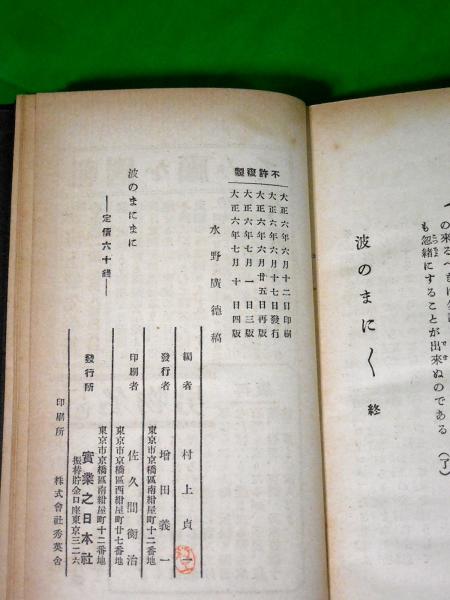 の来るべき
も忽緒にすることが出來ぬのである
（了）
波のまに〱 終
不許復製
大正六年六月十二日印刷
大正六年六月十七日發行
大正六年六月廿五日再版
大正六年七月一日三版
大正六年七月十日四版
水野廣德稿
波のまにまに
定價六十錢
編者 村上貞一
發行者 東京市京橋區南紺屋町十二番地 增田義一
印刷者 東京市京橋區西紺屋町廿七番地 佐久間衡治
發行所 東京市京橋區南紺屋町十二番地 實業之日本社
振替貯金口座東京三二六
印刷所 株式會社秀英舍